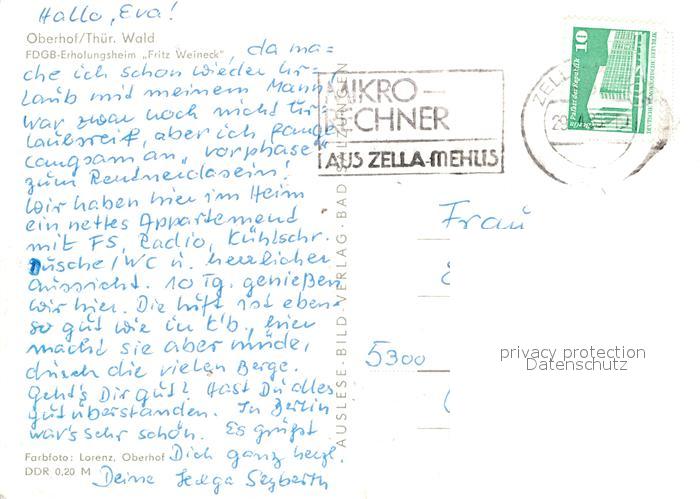 Hallo, Eva!
Oberhof/Thür. Wald
FDGB-Erholungsheim „Fritz Weineck“, da ma=
che ich schon wieder Ur=
laub mit meinem Mann,
war zwar noch nicht ur=
laubsreif, aber ich fange
langsam an „Vorphase“
zum Rentnerdasein!
Wir haben hier im Heim
ein nettes Appartemend
mit FS, Radio, Kühlschr.
Dusche/WC u. herrlicher
Aussicht. 10 Tg. genießen
wir hier. Die Luft ist eben=
so gut wie in K'b., hier
macht sie aber müde,
durch die vielen Berge.
Geht's Dir gut? Hast Du alles
gut überstanden. In Berlin
war's sehr schön. Es grüßt
Dich ganz herzl.
Deine Helga
Farbfoto: Lorenz, Oberhof
DDR 0,20 M
AUSLESE-BILD-VERLAG · BAD SALZUNGEN
MIKRO-
RECHNER
AUS ZELLA-MEHLIS
10
ZELLA
Frau
5300
privacy protection
Datenschutz